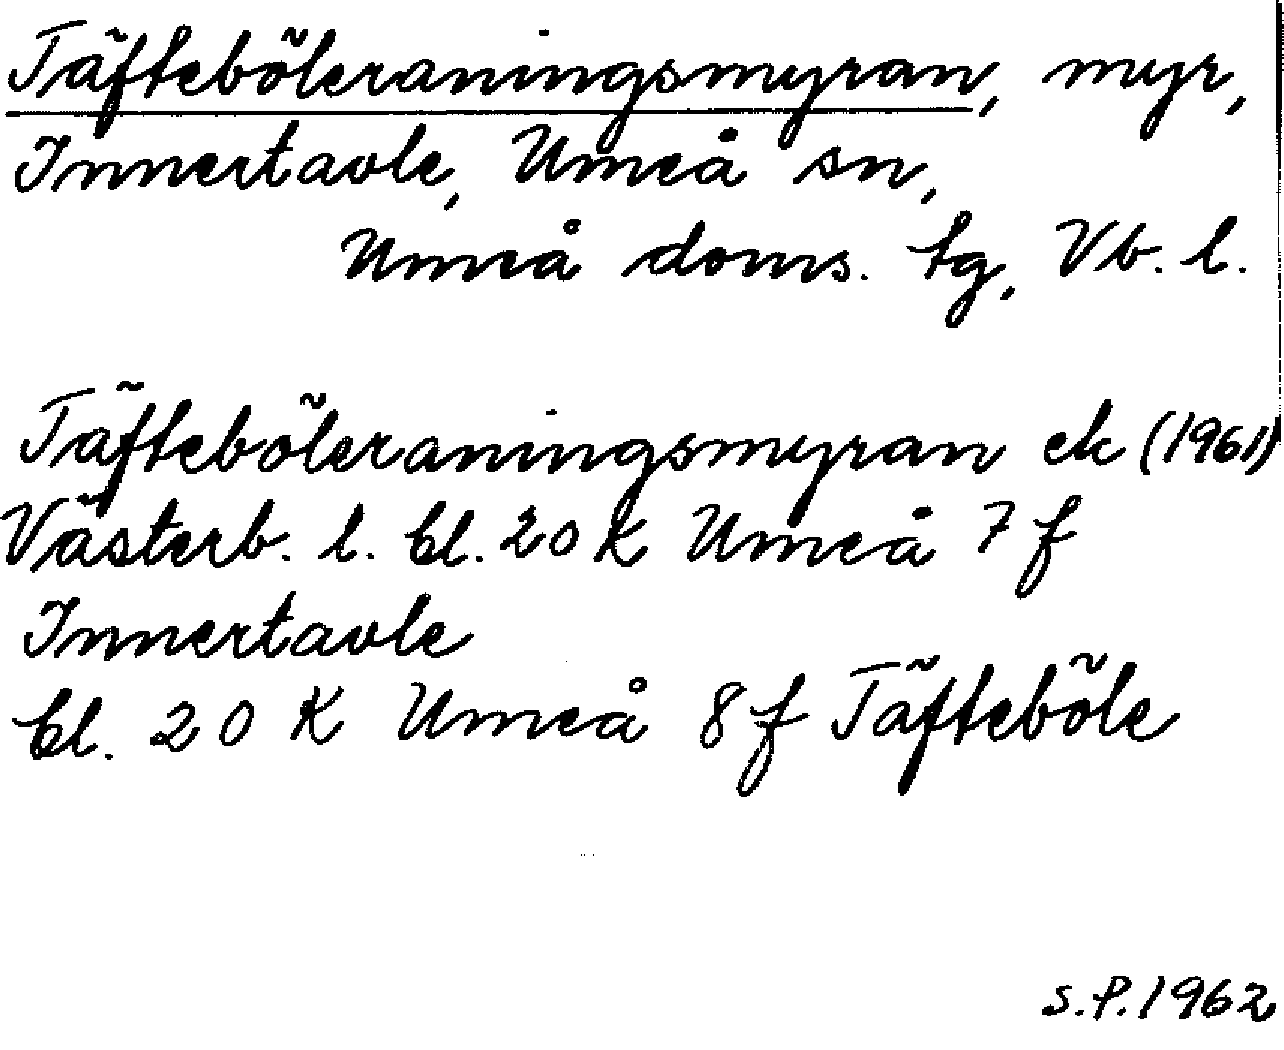 Täfteböleraningsmyran, myr,
Innertavle, Umeå sn,
Umeå doms. tg, Vb. l.
Täfteböleraningsmyran ek (1961)
Västerb. l. bl. 20 K Umeå 7 f
Innertavle
bl. 20 K Umeå 8 f Täfteböle
S.P. 1962